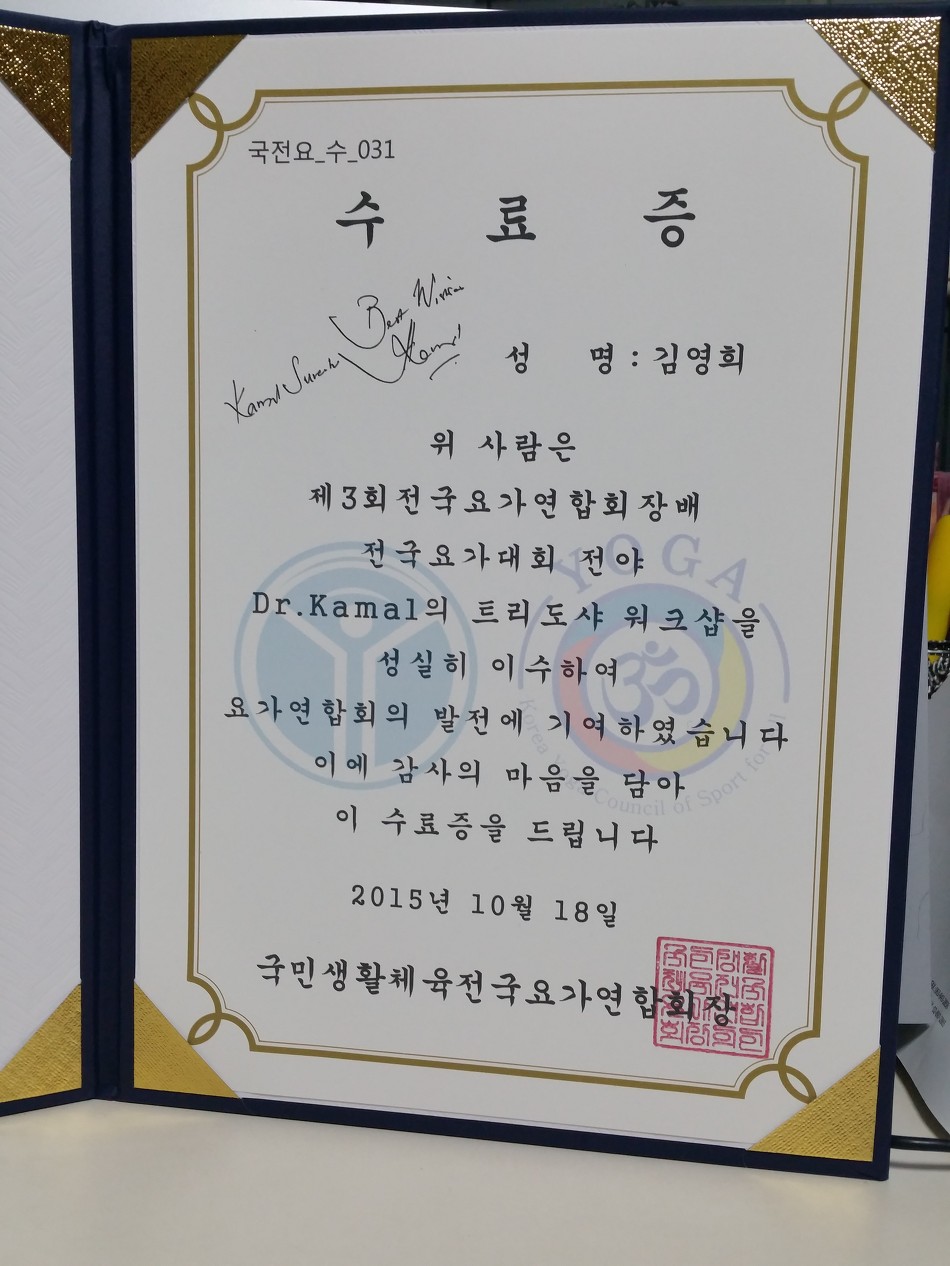 국전요_수_031
수 료 증
Best Wishes
Kamal Suresh Kamal
성 명 : 김영희
위 사람은
제3회전국요가연합회장배
전국요가대회 전야
YOGA
Dr.Kamal의 트리도샤 워크샵을
성실히 이수하여
요가연합회의 발전에 기여하였습니다
이에 감사의 마음을 담아
Korea Yoga Council of Sport for All
이 수료증을 드립니다
2015년 10월 18일
국민생활체육전국요가연합회장